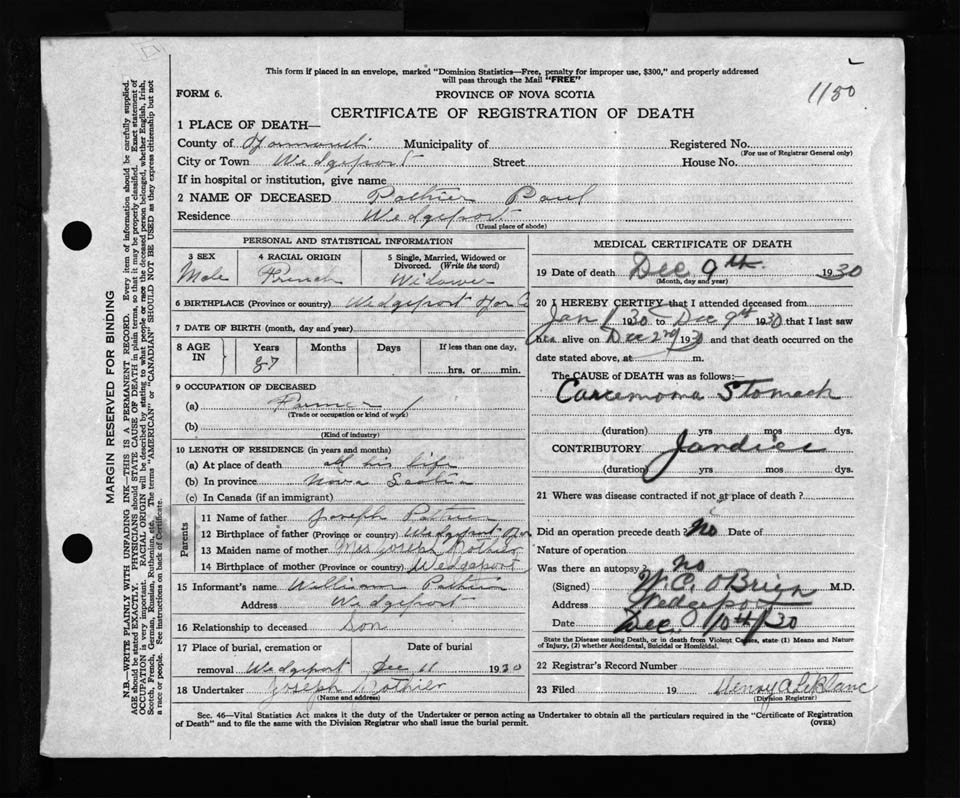 This form if placed in an envelope, marked "Dominion Statistics—Free, penalty for improper use, $300," and properly addressed
will pass through the Mail "FREE"
1150
FORM 6.
PROVINCE OF NOVA SCOTIA
CERTIFICATE OF REGISTRATION OF DEATH
1 PLACE OF DEATH—
County of Yarmouth Municipality of Registered No.
(For use of Registrar General only)
City or Town Wedgeport Street House No.
If in hospital or institution, give name
2 NAME OF DECEASED Pothier Paul
Residence Wedgeport
(Usual place of abode)
PERSONAL AND STATISTICAL INFORMATION
3 SEX 4 RACIAL ORIGIN 5 Single, Married, Widowed or
Divorced. (Write the word)
Male French Widower
6 BIRTHPLACE (Province or country) Wedgeport Yar Co
7 DATE OF BIRTH (month, day and year)
8 AGE IN Years Months Days If less than one day,
87 hrs. or min.
9 OCCUPATION OF DECEASED
(a) Farmer
(Trade or occupation or kind of work)
(b)
(Kind of industry)
10 LENGTH OF RESIDENCE (in years and months)
(a) At place of death all his life
(b) In province Nova Scotia
(c) In Canada (if an immigrant)
Parents
11 Name of father Joseph Pothier
12 Birthplace of father (Province or country) Wedgeport Yar
13 Maiden name of mother Mrs Joseph Pothier
14 Birthplace of mother (Province or country) Wedgeport
15 Informant's name William Pothier
Address Wedgeport
16 Relationship to deceased Son
17 Place of burial, cremation or Date of burial
removal Wedgeport Dec 11 1930
18 Undertaker Joseph Pothier
(Name and address)
MEDICAL CERTIFICATE OF DEATH
19 Date of death Dec 9th. 1930
(Month, day and year)
20 I HEREBY CERTIFY that I attended deceased from
Jan 1 1930 to Dec 9th 1930 that I last saw
him alive on Dec 2nd 1930 and that death occurred on the
date stated above, at m.
The CAUSE OF DEATH was as follows:—
Carcenoma Stomach
(duration) yrs mos dys.
CONTRIBUTORY Jandice
(duration) yrs mos dys.
21 Where was disease contracted if not at place of death?
Did an operation precede death? No Date of
Nature of operation
Was there an autopsy? no
(Signed) W.C. O'Brien M.D.
Address Wedgeport
Date Dec 10th/30
State the Disease causing Death, or in death from Violent Causes, state (1) Means and Nature
of Injury, (2) whether Accidental, Suicidal or Homicidal.
22 Registrar's Record Number
23 Filed 19 Henry A LeBlanc
(Division Registrar)
Sec. 46—Vital Statistics Act makes it the duty of the Undertaker or person acting as Undertaker to obtain all the particulars required in the "Certificate of Registration
of Death" and to file the same with the Division Registrar who shall issue the burial permit. (OVER)
MARGIN RESERVED FOR BINDING
N.B.—WRITE PLAINLY WITH UNFADING INK—THIS IS A PERMANENT RECORD. Every item of information should be carefully supplied.
AGE should be stated EXACTLY. PHYSICIANS should STATE CAUSE OF DEATH in plain terms, so that it may be properly classified. Exact statement of
OCCUPATION is very important. RACIAL ORIGIN will be described by stating to what people or race the deceased person belonged, whether English, Irish,
Scotch, French, German, Russian, Ruthenian, etc. The terms "AMERICAN" or "CANADIAN" SHOULD NOT BE USED as they express citizenship but not
a race or people. See instructions on back of Certificate.